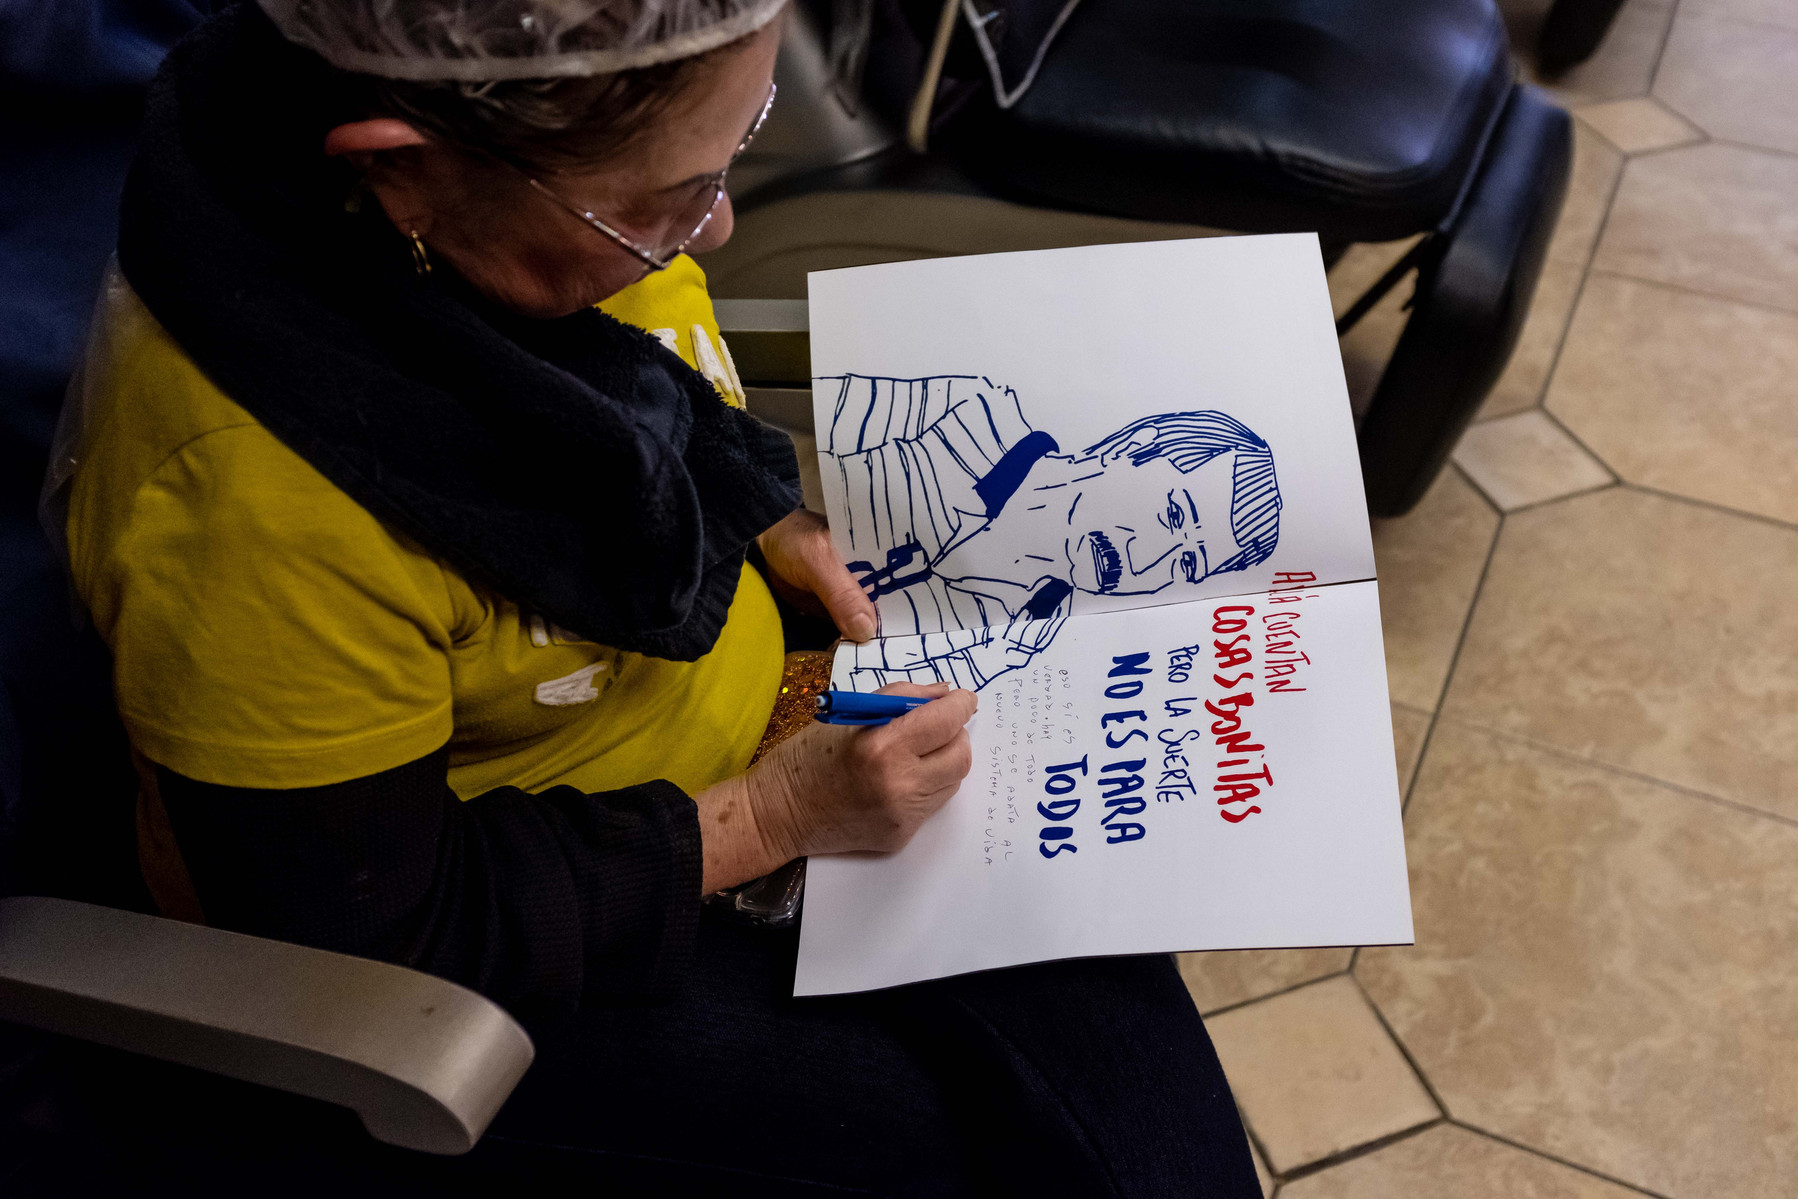 ALLÁ CUENTAN
COSAS BONITAS
PERO LA SUERTE
NO ES PARA
TODOS
eso sí es
verdad. hay
un poco de todo
Pero uno se adata al
nuevo sistema de vida